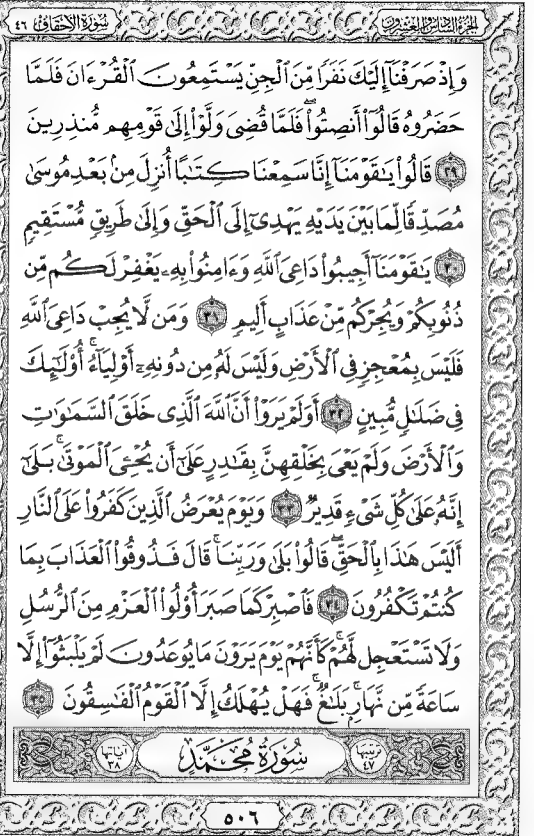 الجزء السادس والعشرون سورة الأحقاف ٤٦
وَإِذْ صَرَفْنَآ إِلَيْكَ نَفَرًا مِّنَ ٱلْجِنِّ يَسْتَمِعُونَ ٱلْقُرْءَانَ فَلَمَّا
حَضَرُوهُ قَالُوٓا۟ أَنصِتُوا۟ ۖ فَلَمَّا قُضِىَ وَلَّوْا۟ إِلَىٰ قَوْمِهِم مُّنذِرِينَ
٢٩ قَالُوا۟ يَٰقَوْمَنَآ إِنَّا سَمِعْنَا كِتَٰبًا أُنزِلَ مِنۢ بَعْدِ مُوسَىٰ
مُصَدِّقًا لِّمَا بَيْنَ يَدَيْهِ يَهْدِىٓ إِلَى ٱلْحَقِّ وَإِلَىٰ طَرِيقٍ مُّسْتَقِيمٍ
٣٠ يَٰقَوْمَنَآ أَجِيبُوا۟ دَاعِىَ ٱللَّهِ وَءَامِنُوا۟ بِهِۦ يَغْفِرْ لَكُم مِّن
ذُنُوبِكُمْ وَيُجِرْكُم مِّنْ عَذَابٍ أَلِيمٍ ٣١ وَمَن لَّا يُجِبْ دَاعِىَ ٱللَّهِ
فَلَيْسَ بِمُعْجِزٍ فِى ٱلْأَرْضِ وَلَيْسَ لَهُۥ مِن دُونِهِۦٓ أَوْلِيَآءُ ۚ أُو۟لَٰٓئِكَ
فِى ضَلَٰلٍ مُّبِينٍ ٣٢ أَوَلَمْ يَرَوْا۟ أَنَّ ٱللَّهَ ٱلَّذِى خَلَقَ ٱلسَّمَٰوَٰتِ
وَٱلْأَرْضَ وَلَمْ يَعْىَ بِخَلْقِهِنَّ بِقَٰدِرٍ عَلَىٰٓ أَن يُحْۦِىَ ٱلْمَوْتَىٰ ۚ بَلَىٰٓ
إِنَّهُۥ عَلَىٰ كُلِّ شَىْءٍ قَدِيرٌ ٣٣ وَيَوْمَ يُعْرَضُ ٱلَّذِينَ كَفَرُوا۟ عَلَى ٱلنَّارِ
أَلَيْسَ هَٰذَا بِٱلْحَقِّ ۖ قَالُوا۟ بَلَىٰ وَرَبِّنَا ۚ قَالَ فَذُوقُوا۟ ٱلْعَذَابَ بِمَا
كُنتُمْ تَكْفُرُونَ ٣٤ فَٱصْبِرْ كَمَا صَبَرَ أُو۟لُوا۟ ٱلْعَزْمِ مِنَ ٱلرُّسُلِ
وَلَا تَسْتَعْجِل لَّهُمْ ۚ كَأَنَّهُمْ يَوْمَ يَرَوْنَ مَا يُوعَدُونَ لَمْ يَلْبَثُوٓا۟ إِلَّا
سَاعَةً مِّن نَّهَارٍۭ ۚ بَلَٰغٌ ۚ فَهَلْ يُهْلَكُ إِلَّا ٱلْقَوْمُ ٱلْفَٰسِقُونَ ٣٥
ترتيبها ٤٧ سُورَةُ مُحَمَّدٍ آياتها ٣٨
٥٠٦